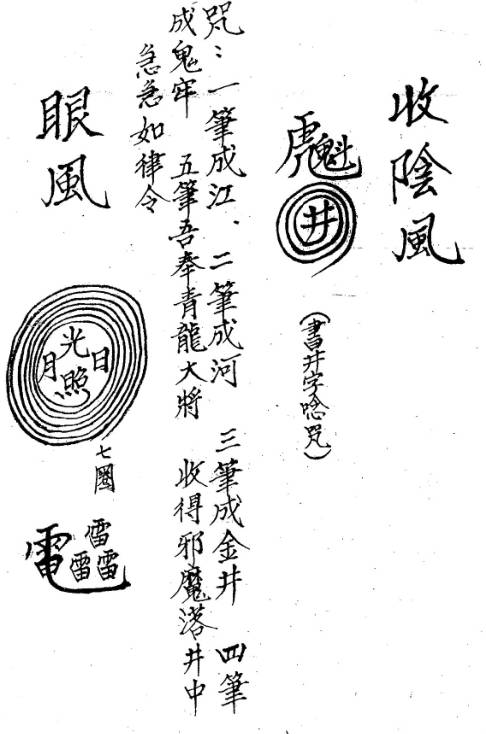 收陰風
井
(書井字唸咒)
咒：一筆成江、二筆成河 三筆成金井 四筆
成鬼牢 五筆吾奉青龍大將 收得邪魔落井中
急急如律令
眼風
日
月
光
照
七圈
電
雷
雷雷